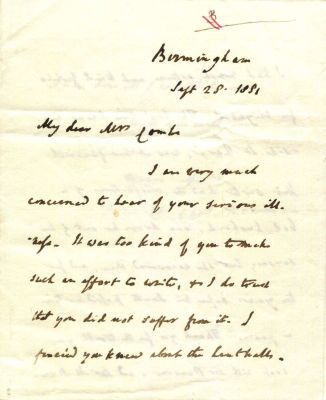 B
Birmingham
Sept 28. 1881
My dear Mrs Combe
I am very much
concerned to hear of your serious ill-
-ness. It was too kind of you to make
such an effort to write, & I do trust
that you did not suffer from it. I
fancied you knew about the